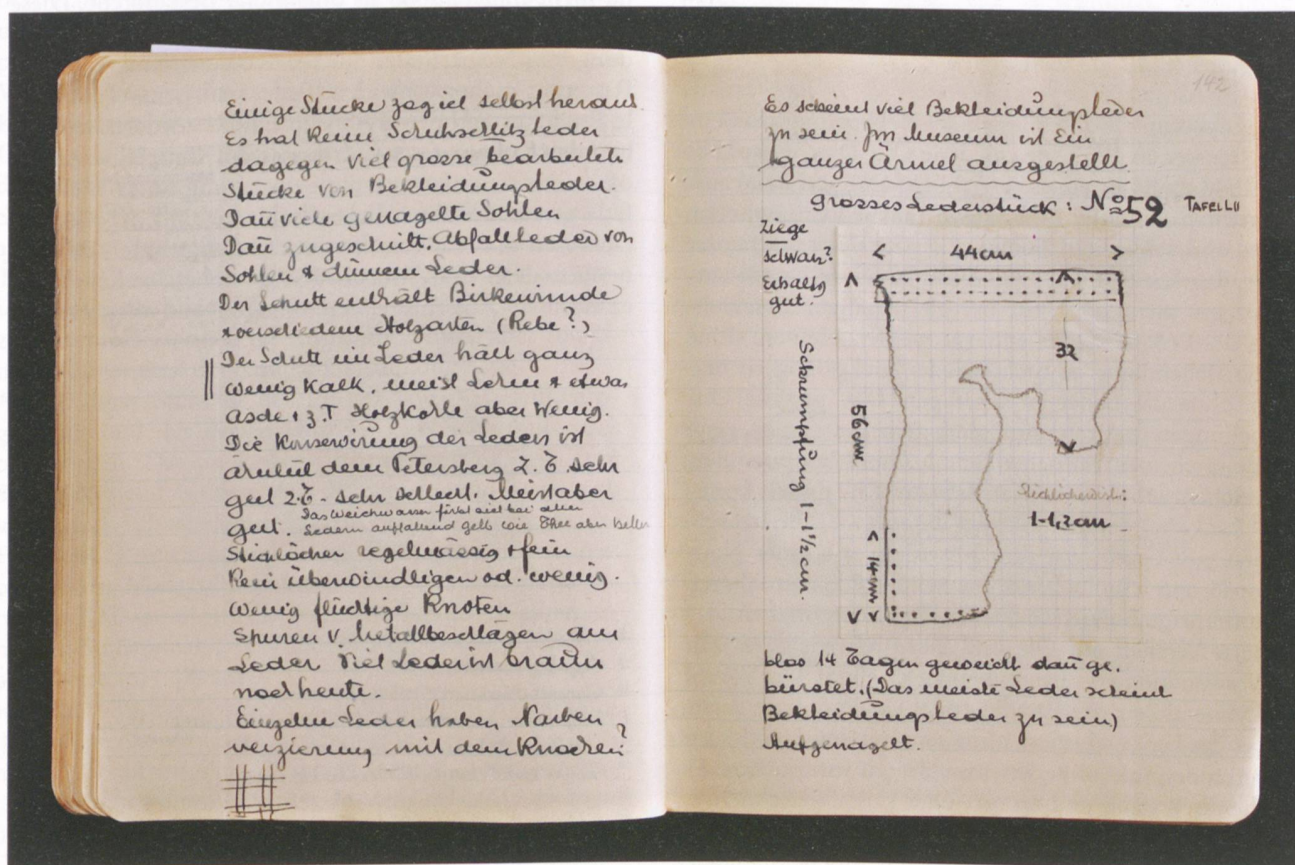 Einige Stücke zog ich selbst heraus.
Es hat keine Schuhschlitzleder
dagegen viel grosse bearbeitete
Stücke von Bekleidungsleder.
Dañ viele genagelte Sohlen
Dañ zugeschnitt. Abfallleder von
Sohlen & dünnem Leder.
Der Schutt enthält Birkenrinde
& verschiedene Holzarten (Rebe?)
Der Schutt im Leder hält ganz
wenig Kalk, meist Lehm & etwas
Asche & z.T Holzkohle aber wenig.
Die Konservirung des Leders ist
änhlich dem Petersberg z.T. sehr
gut z.T. sehr schlecht. Meist aber
gut. Das Weichwasser färbt sich bei allen
Ledern auffallend gelb wie Thee aber heller
Stichlöcher regelmässig & fein
Kein überwindligen od. wenig.
Wenig flüchtige Knoten
Spuren v. Metallbeschlägen am
Leder. Viel Leder ist braun
noch heute.
Einzelne Leder haben Narben
verzierung mit dem Knochen?
142
Es scheint viel Bekleidungsleder
zu sein. Im Museum ist Ein
ganzer Ärmel ausgestellt.
Grosses Lederstück: No 52 TAFEL LII
Ziege
schwarz?
Erhaltg
gut.
44 cm
32
56 cm
14 cm
Schrumpfung 1-1½ cm.
1-1,2 cm
blos 14 Tagen geweicht dañ ge.
bürstet. (Das meiste Leder scheint
Bekleidungsleder zu sein)
Aufgenagelt.